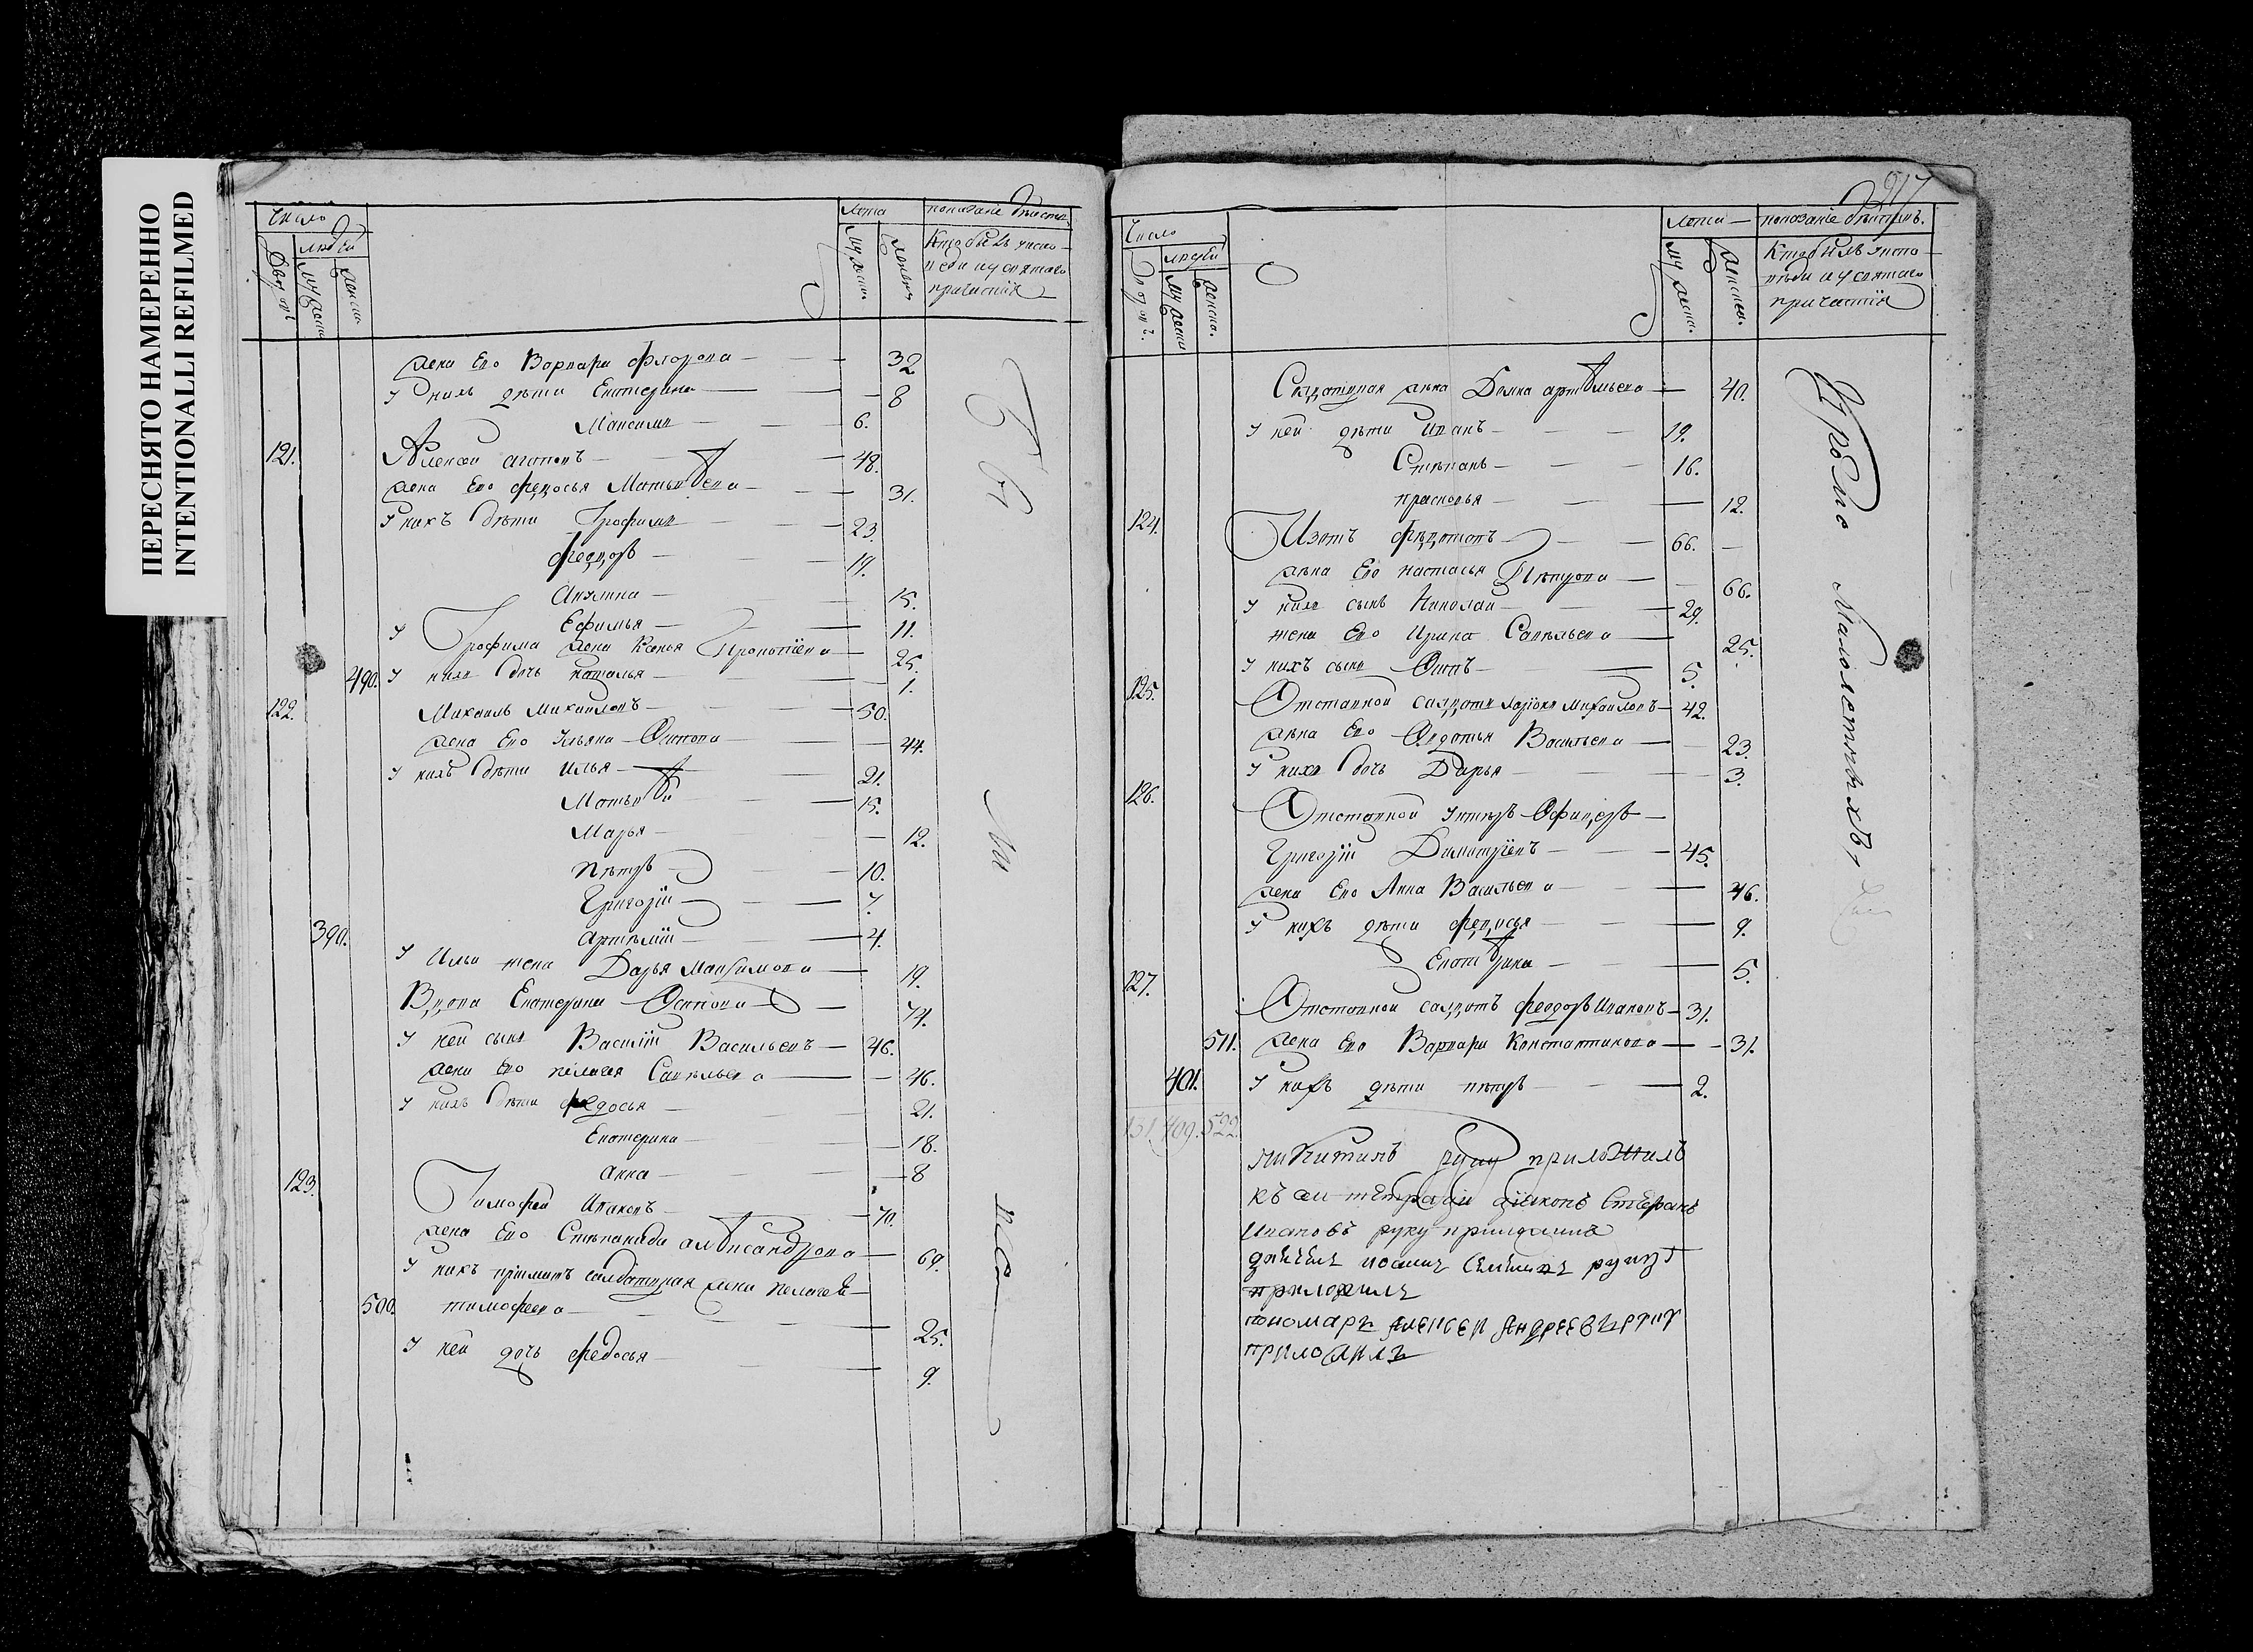 ПЕРЕСНЯТО НАМЕРЕННО
INTENTIONALLI REFILMED
Число
людей
лета
показание действ
Кто былъ у испо
веди и у святаго
причастия
жена Ево Варвара Флорова 32
У нихъ дѣти Екатерина 8
Максимъ 6.
121. Алексей 48.
жена Ево Федосья Матвѣева 31.
У нихъ дѣти Трофимъ 23.
Феодоръ 19.
Акилина 15.
Ефимья 11.
У Трофима жена Ксенья Прокопіева 25.
490. У нихъ дочь Наталья 1.
122. Михаилъ Михаиловъ 50.
жена Ево Ульяна Осипова 44.
У нихъ дѣти Илья 21.
Матвѣй 15.
Марья 12.
Петръ 10.
Григорій 7.
390. Артемій 4.
У Ильи жена Дарья Максимова 19.
Вдова Екатерина Осипова 74.
У ней сынъ Василій Васильевъ 46.
жена Ево Пелагея Савельева 46.
У нихъ дѣти Федосья 21.
Екатерина 18.
Анна 8
123. Тимофей Ивановъ 70.
жена Ево Степанида Александрова 69.
У нихъ салдатцкая жена Пелагея
500. Тимофеева 25.
У ней дочь Федосья 9.
917
Число
людей
лета
показаніе действъ.
Кто былъ у испо
вѣди и у святаго
причастія
Салдатцкая жена Домна Артемьева 40.
У ней дѣти Иванъ 19.
Степанъ 16.
Прасковья 12.
124. Изотъ Федотовъ 66.
жена Ево Настасья Петрова 66.
У нихъ сынъ Николай 29.
жена Ево Ирина Савельева 25.
У нихъ сынъ Осипъ 5.
125. Отставной салдатъ Ларіонъ Михаиловъ 42.
жена Ево Авдотья Васильева 23.
У нихъ дочь Дарья 3.
126. Отставной Унтеръ Офицеръ
Григорій Димитріевъ 45.
жена Ево Анна Васильева 46.
У нихъ дѣти Федосья 9.
Екатерина 5.
127. Отставной салдатъ Феодоръ Ивановъ 31.
511. жена Ево Варвара Константинова 31.
401. У нихъ дѣти Петръ 2.
131. 409. 522.
Никитинъ руку приложилъ
Къ сей тетради діяконъ Стефанъ
Ивановъ руку приложилъ
дьячекъ руку
приложилъ
пономарь Алексей Андреевъ руку
приложилъ
Кроме Малолетныхъ,